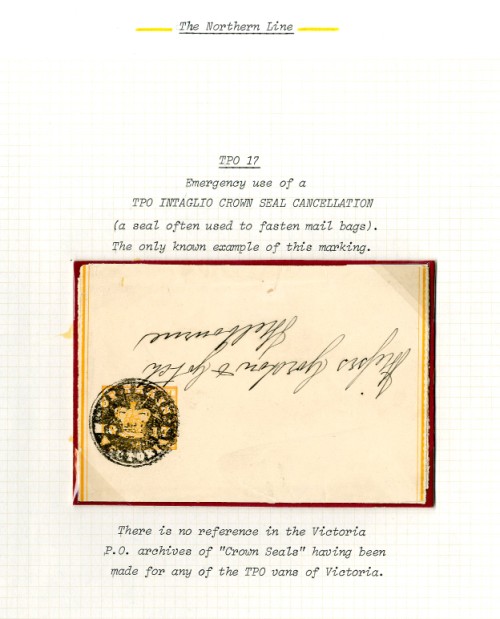 The Northern Line
TPO 17
Emergency use of a
TPO INTAGLIO CROWN SEAL CANCELLATION
(a seal often used to fasten mail bags).
The only known example of this marking.
Messrs Gordon & Gotch
Melbourne
There is no reference in the Victoria
P.O. archives of "Crown Seals" having been
made for any of the TPO vans of Victoria.